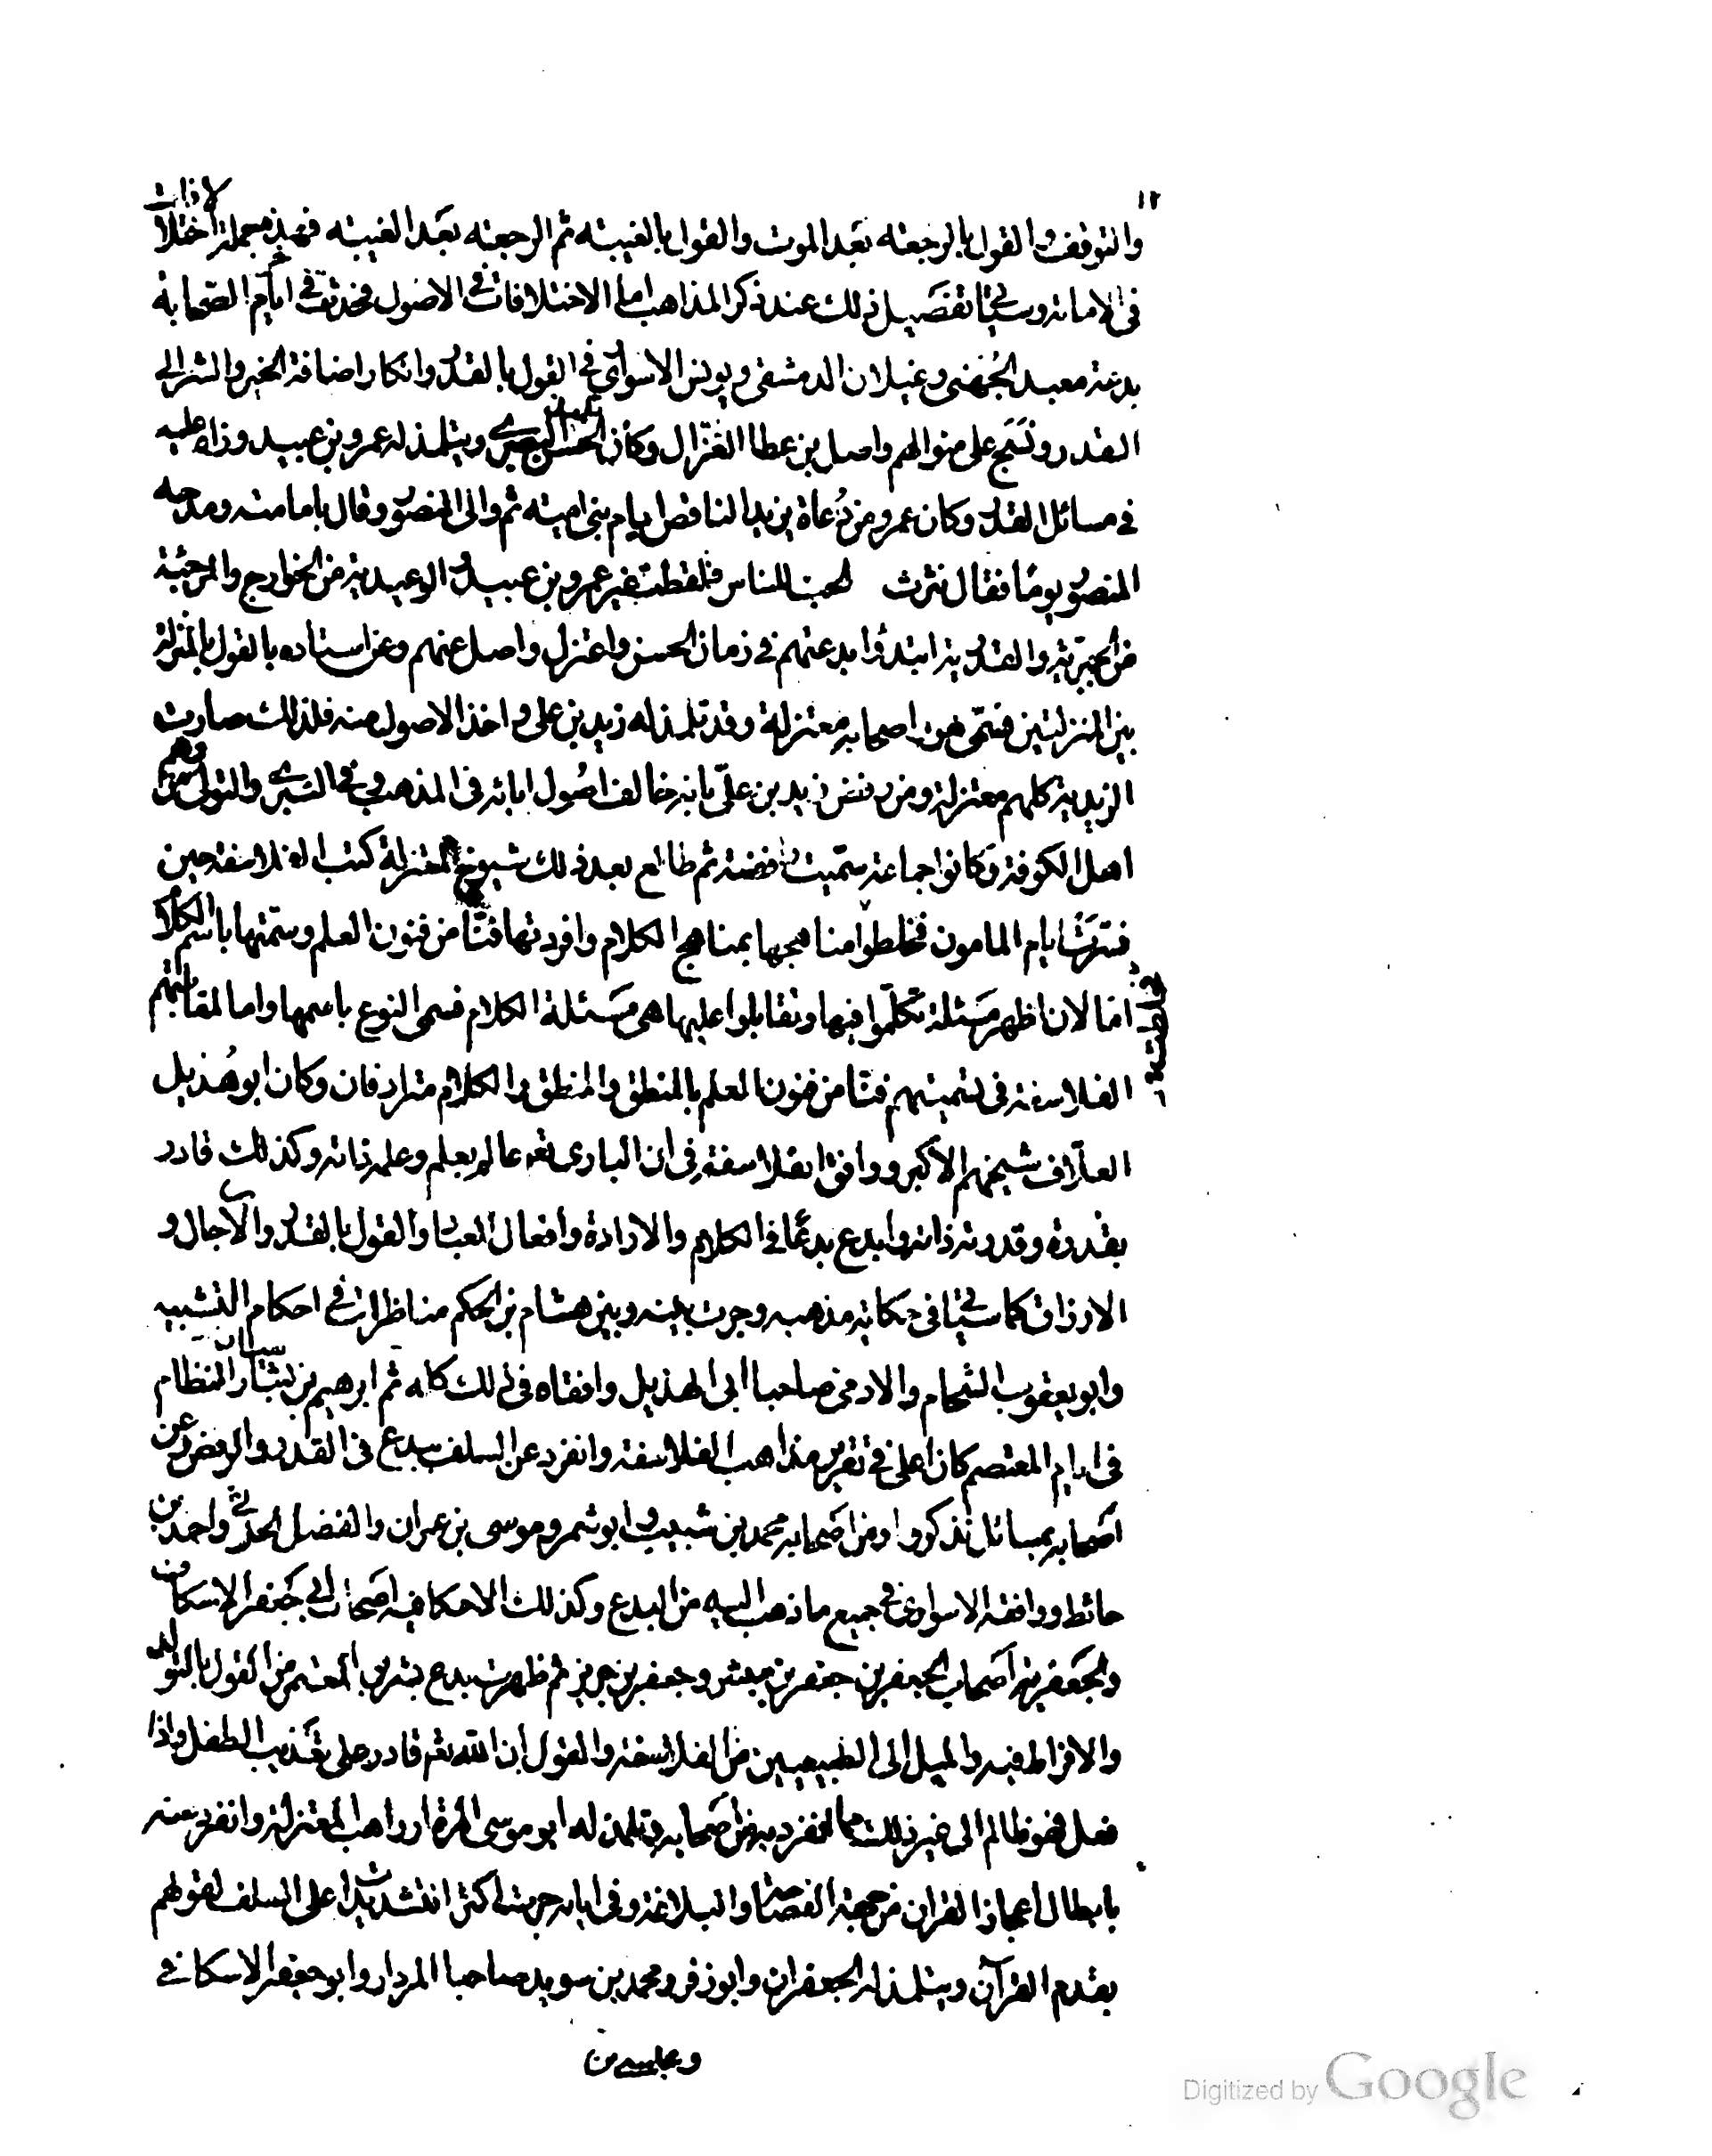 ١٢
والتوقف والقول بالرجعة بعد الموت والقول بالغيبة ثم الرجعة بعد الغيبة فهذه جملة اختلافات
في الامامة وسياتي تفصيل ذلك عند ذكر المذاهب اما الاختلافات في الاصول فحدثت في ايام الصحابة
بدعة معبد الجهني وغيلان الدمشقي ويونس الاسواري في القول بالقدر وانكار اضافة الخير والشر الى
القدر ونسج على منوالهم واصل بن عطا الغزال وكان تلميذ الحسن البصري وتلمذ له عمرو بن عبيد وزاد عليه
في مسائل القدر وكان عمرو من دعاة يزيد الناقص ايام بني امية ثم والى المنصور وقال بامامته ومدحه
المنصور يوما فقال نثرت الحب للناس فلقطت غير عمرو بن عبيد والوعيدية من الخوارج والمرجئة
من الجبرية والقدرية ابتدؤا بدعتهم في زمان الحسن واعتزل واصل عنهم وعن استاده بالقول بالمنزلة
بين المنزلتين فسمى هو واصحابه معتزلة وقد تلمذ له زيد بن علي واخذ الاصول منه فلذلك صارت
الزيدية كلهم معتزلة ومن رفض زيد بن علي بانه خالف اصول ابائه في المذهب وفي التبري والتولي وهم من
اهل الكوفة وكانوا جماعة سميت رافضة ثم طالع بعد ذلك شيوخ المعتزلة كتب الفلاسفة حين
فسرت ايام المامون فخلطوا مناهجها بمناهج الكلام وافردتها فنا من فنون العلم وسمتها باسم الكلام
اما لان اظهر مسئلة تكلموا فيها وتقابلوا عليها هي مسئلة الكلام فسمي النوع باسمها واما لمقابلتهم
الفلاسفة في تسميتهم فنا من فنون العلم بالمنطق والمنطق والكلام مترادفان وكان ابو هذيل
العلاف شيخهم الاكبر ووافق الفلاسفة في ان الباري تعم عالم بعلم وعلمه ذاته وكذلك قادر
بقدرة وقدرته ذاته وابدع بدعا في الكلام والارادة وافعال العباد والقول بالقدر والآجال و
الارزاق كما سياتي في حكاية مذهبه وجرت بينه وبين هشام بن الحكم مناظرات في احكام التشبيه
وابو يعقوب الشحام والادمي صاحبا ابى الهذيل وافقاه في ذلك كله ثم ابرهيم بن سيار النظام
في ايام المعتصم كان اعلى في تقرير مذاهب الفلاسفة وانفرد عن السلف ببدع في القدر والرفض وعن
اصحابه بمسائل نذكرها ومن اصحابه محمد بن شبيب وابو شمر وموسى بن عمران والفضل الحدثي واحمد بن
حائط ووافقه الاسواري في جميع ما ذهب اليه من البدع وكذلك الاسكافية اصحاب ابي جعفر الاسكافي
والجعفرية اصحاب الجعفرين جعفر بن مبشر وجعفر بن حرب ثم ظهرت بدع بشر بن المعتمر من القول بالتولد
والافراط فيه والميل الى الطبيعيين من الفلاسفة والقول ان الله تعم قادر على تعذيب الطفل واذا
فعل فهو ظالم الى غير ذلك مما انفرد به من اصحابه وتلمذ له ابو موسى المردار راهب المعتزلة وانفرد عنه
بابطال اعجاز القران من جهة الفصاحة والبلاغة وفي ايامه جرت اكثر التشديدات على السلف لقولهم
بقدم القرآن وتلمذ له الجعفران وابو زفر ومحمد بن سويد صاحبا المردار وابو جعفر الاسكافي
وعيسى بن